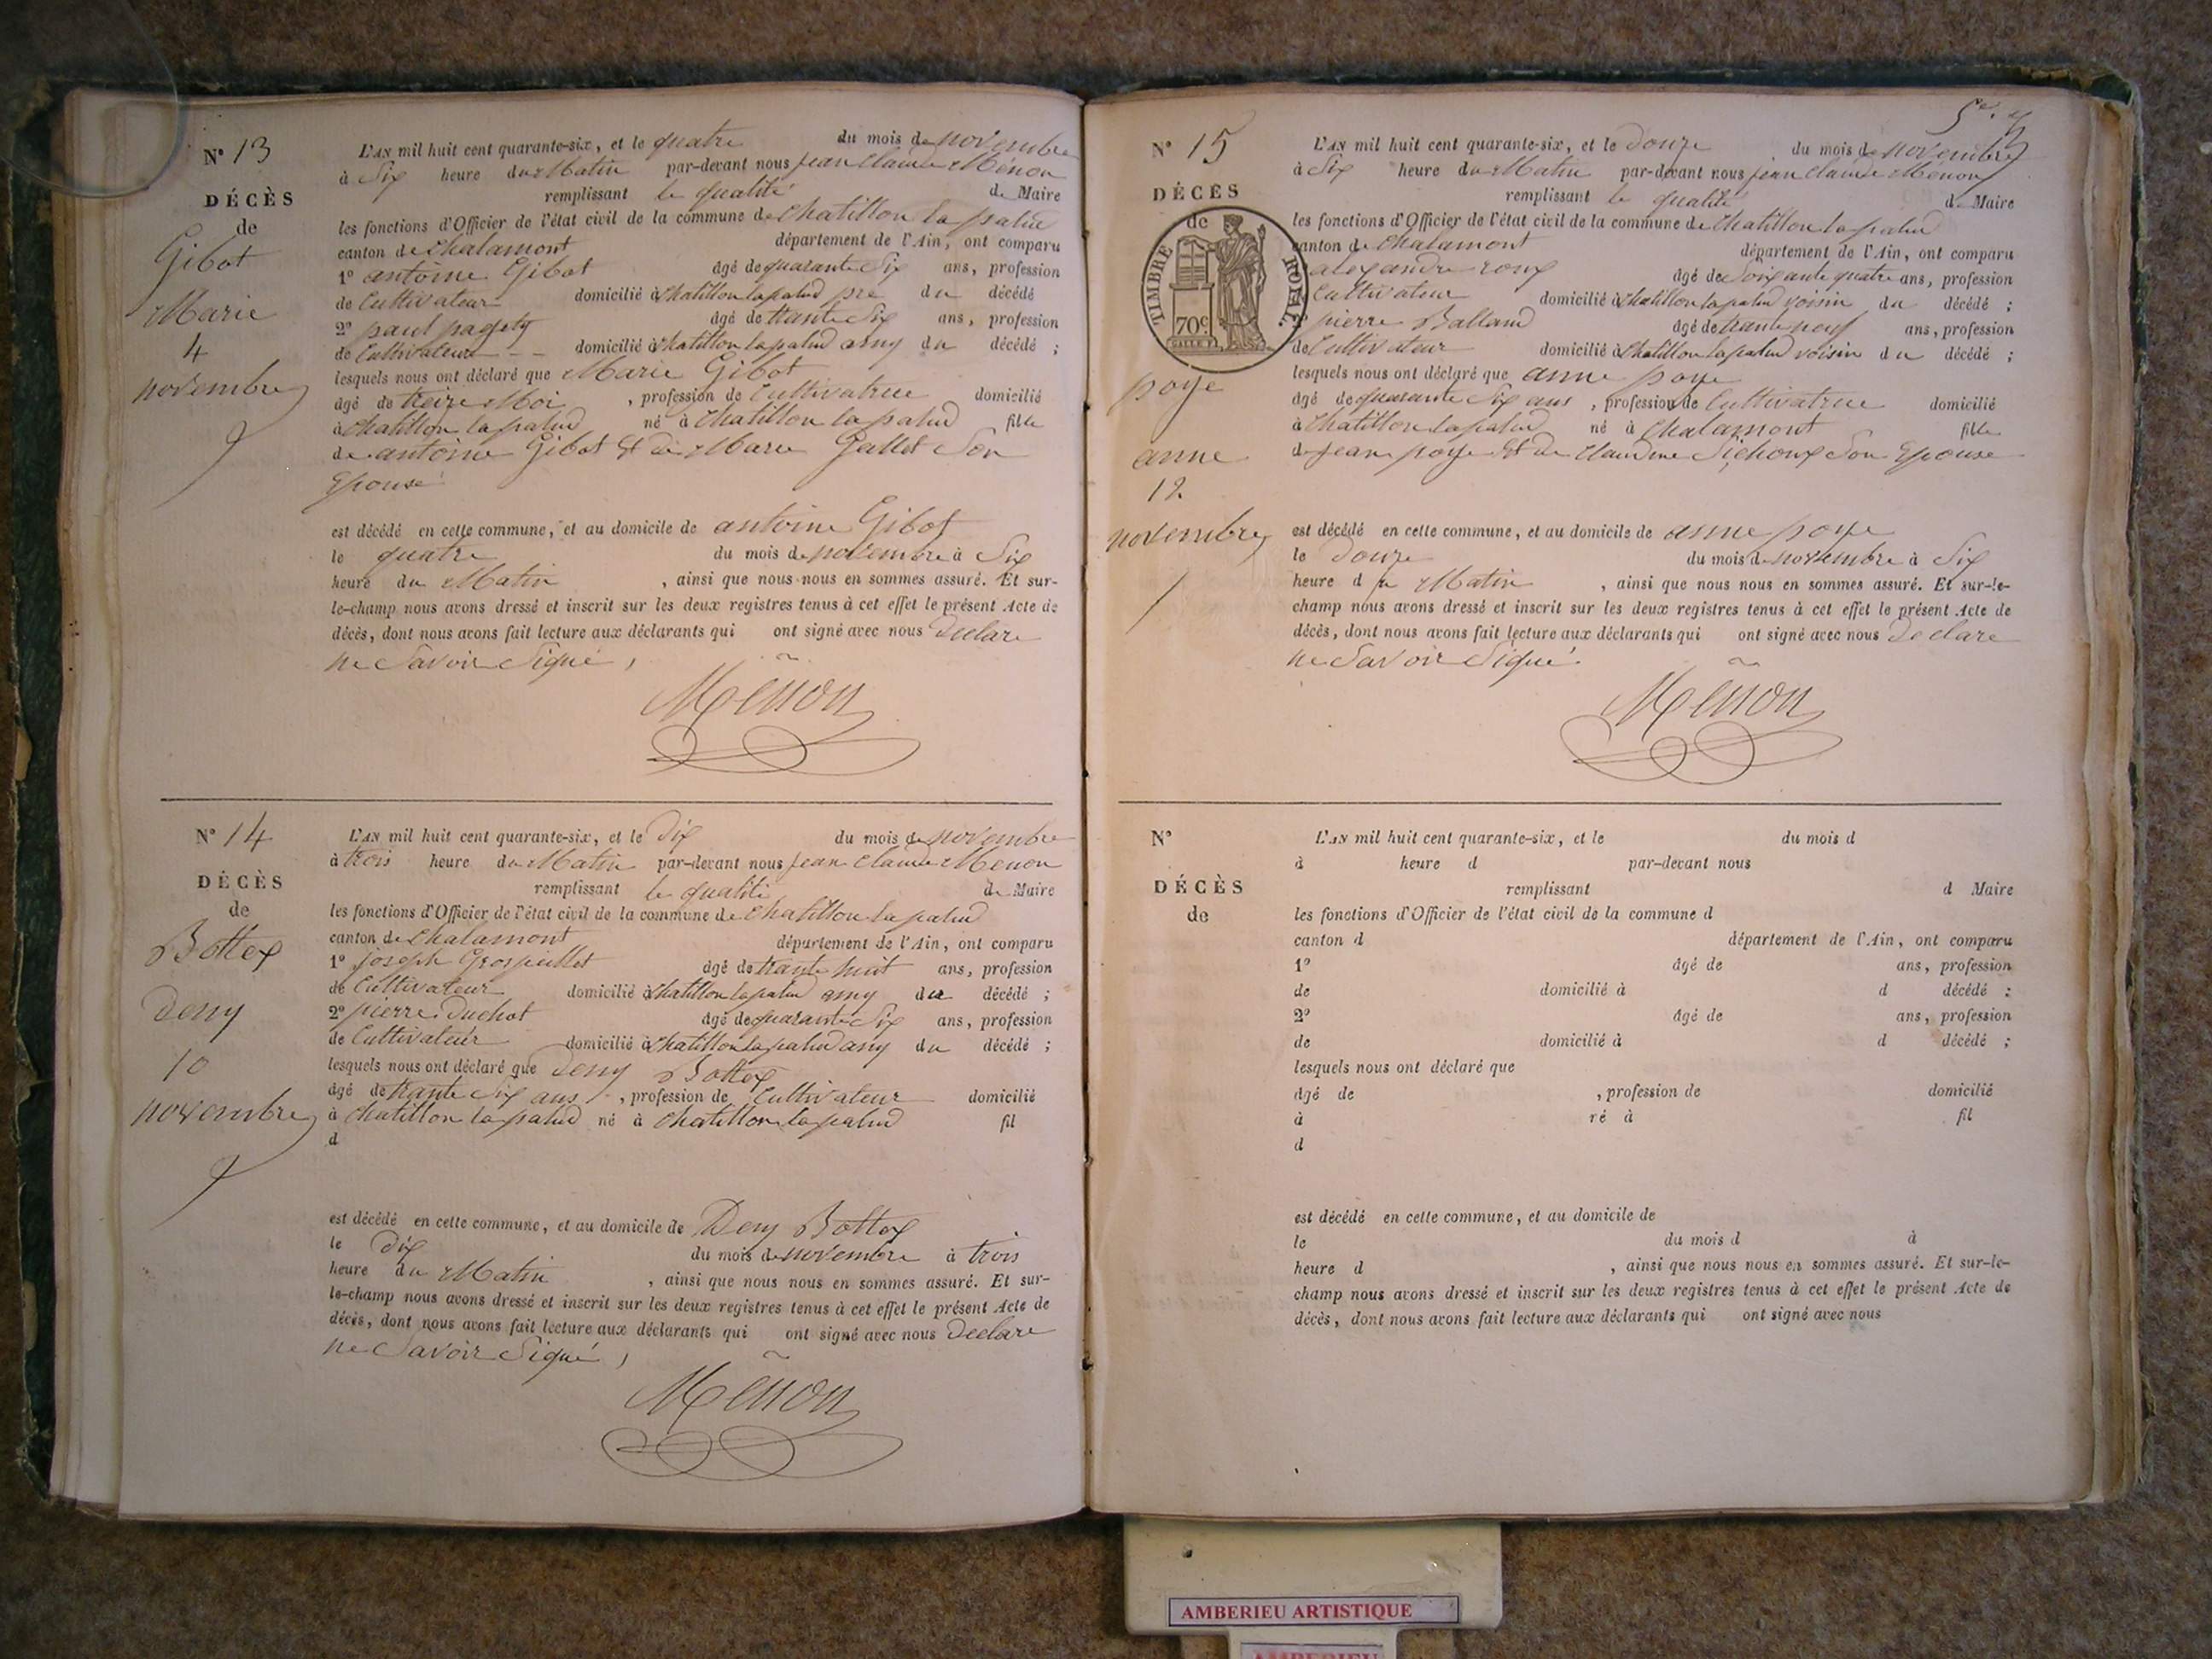 N° 13
DÉCÈS
de
Gibot
Marie
4
novembre
L'AN mil huit cent quarante-six, et le quatre du mois de novembre
à Six heure du Matin par-devant nous jean Claude Ménon
remplissant la qualité de Maire
les fonctions d'Officier de l'état civil de la commune de Chatillon la palud
canton de Chalamont département de l'Ain, ont comparu
1° antoine Gibot âgé de quarante Six ans, profession
de Cultivateur domicilié à Chatillon lapalud pre du décédé
2° paul âgé de trante Six ans, profession
de Cultivateur domicilié à Chatillon lapalud amy du décédé ;
lesquels nous ont déclaré que Marie Gibot
âgé de treize Moi , profession de Cultivatrice domicilié
à Chatillon lapalud né à Chatillon la palud fille
de antoine Gibot Et de Marie Gallet Son
Epouse
est décédé en cette commune, et au domicile de antoine Gibot
le quatre du mois de novembre à Six
heure du Matin , ainsi que nous nous en sommes assuré. Et sur-
le-champ nous avons dressé et inscrit sur les deux registres tenus à cet effet le présent Acte de
décès, dont nous avons fait lecture aux déclarants qui ont signé avec nous Declare
ne Savoir Signé,
Ménon
N° 14
DÉCÈS
de
Bottex
Deny
10
novembre
L'AN mil huit cent quarante-six, et le Dix du mois de novembre
à trois heure du Matin par-devant nous jean Claude Menon
remplissant la qualité de Maire
les fonctions d'Officier de l'état civil de la commune de Chatillon la palud
canton de Chalamont département de l'Ain, ont comparu
1° joseph Grospiellet âgé de trante huit ans, profession
de Cultivateur domicilié à Chatillon lapalud amy du décédé ;
2° pierre Duchot âgé de quarante Six ans, profession
de Cultivateur domicilié à Chatillon lapalud amy du décédé ;
lesquels nous ont déclaré que Deny Bottex
âgé de trante Six ans , profession de Cultivateur domicilié
à Chatillon la palud né à Chatillon lapalud fil
d
est décédé en cette commune, et au domicile de Deny Bottex
le Dix du mois de novembre à trois
heure du Matin , ainsi que nous nous en sommes assuré. Et sur-
le-champ nous avons dressé et inscrit sur les deux registres tenus à cet effet le présent Acte de
décès, dont nous avons fait lecture aux déclarants qui ont signé avec nous Declare
ne Savoir Signé,
Ménon
N° 15
DÉCÈS
de
TIMBRE ROYAL
70c
poye
anne
12
novembre
L'AN mil huit cent quarante-six, et le Douze du mois de novembre
à Six heure du Matin par-devant nous jean Claude Ménon
remplissant la qualité de Maire
les fonctions d'Officier de l'état civil de la commune de Chatillon la palud
canton de Chalamont département de l'Ain, ont comparu
alexandre roux âgé de Soixante quatre ans, profession
Cultivateur domicilié à Chatillon la palud voisin du décédé ;
pierre Balland âgé de trante neuf ans, profession
de Cultivateur domicilié à Chatillon lapalud voisin du décédé ;
lesquels nous ont déclaré que anne poye
âgé de quarante Six ans , profession de Cultivatrice domicilié
à Chatillon lapalud né à Chalamont fille
de jean poye Et de Claudine Son Epouse
est décédé en cette commune, et au domicile de anne poye
le Douze du mois de novembre à Six
heure du Matin , ainsi que nous nous en sommes assuré. Et sur-le-
champ nous avons dressé et inscrit sur les deux registres tenus à cet effet le présent Acte de
décès, dont nous avons fait lecture aux déclarants qui ont signé avec nous Declare
ne Savoir Signé.
Ménon
N°
DÉCÈS
de
L'AN mil huit cent quarante-six, et le du mois d
à heure d par-devant nous
remplissant d Maire
les fonctions d'Officier de l'état civil de la commune d
canton d département de l'Ain, ont comparu
1° âgé de ans, profession
de domicilié à d décédé ;
2° âgé de ans, profession
de domicilié à d décédé ;
lesquels nous ont déclaré que
âgé de , profession de domicilié
à né à fil
d
est décédé en cette commune, et au domicile de
le du mois d à
heure d , ainsi que nous nous en sommes assuré. Et sur-le-
champ nous avons dressé et inscrit sur les deux registres tenus à cet effet le présent Acte de
décès, dont nous avons fait lecture aux déclarants qui ont signé avec nous
AMBERIEU ARTISTIQUE
AMBERIEU